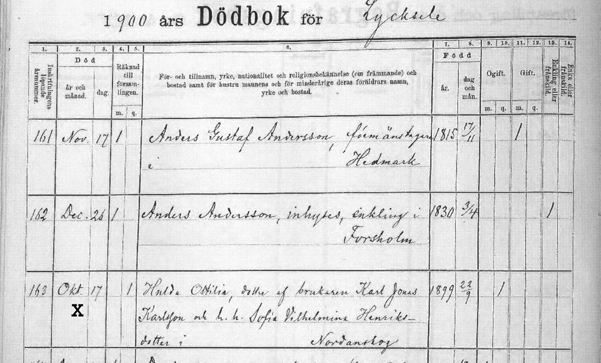 1900 års Dödbok för Lycksele
1. 2. 3. 4. 5. 6. 7. 8. 9. 10. 11. 12. 13. 14.
Död
Räknad till församlingen.
För- och tillnamn, yrke, nationalitet och religionsbekännelse (om främmande) och
bostad samt för hustru mannens och för minderårige deras föräldrars namn,
yrke och bostad.
Född
Ogift. Gift.
år och månad. dag. m. q. år. dag och mån. m. q. m. q.
161 Nov. 17 1 Anders Gustaf Andersson, förmånstagare 1815 17/11 1
i Hedmark
162 Dec. 26 1 Anders Andersson, inhyses, enkling i 1830 3/4 1
Forsholm
163 Okt 17 1 Hulda Ottilia, dotter af brukaren Karl Jonas 1899 22/9 1
X Karlsson och h. h. Sofia Vilhelmina Henriks-
dotter i Nordanskog